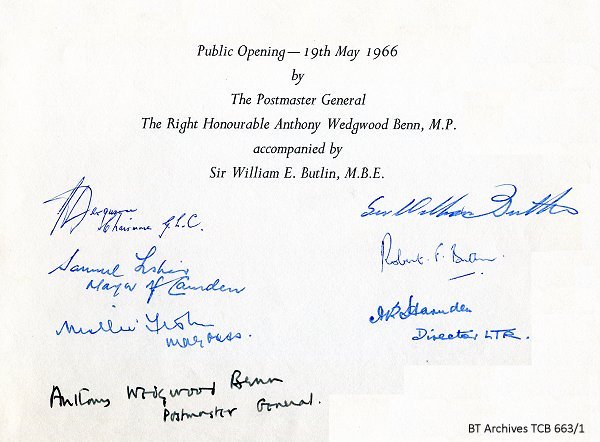 Public Opening — 19th May 1966
by
The Postmaster General
The Right Honourable Anthony Wedgwood Benn, M.P.
accompanied by
Sir William E. Butlin, M.B.E.
Ferguson
Chairman G.L.C.
Samuel Fisher
Mayor of Camden
Millie Fisher
Mayoress.
Sir William Butlin
Robert F. Butlin.
Director LTR.
Anthony Wedgwood Benn
Postmaster General.
BT Archives TCB 663/1